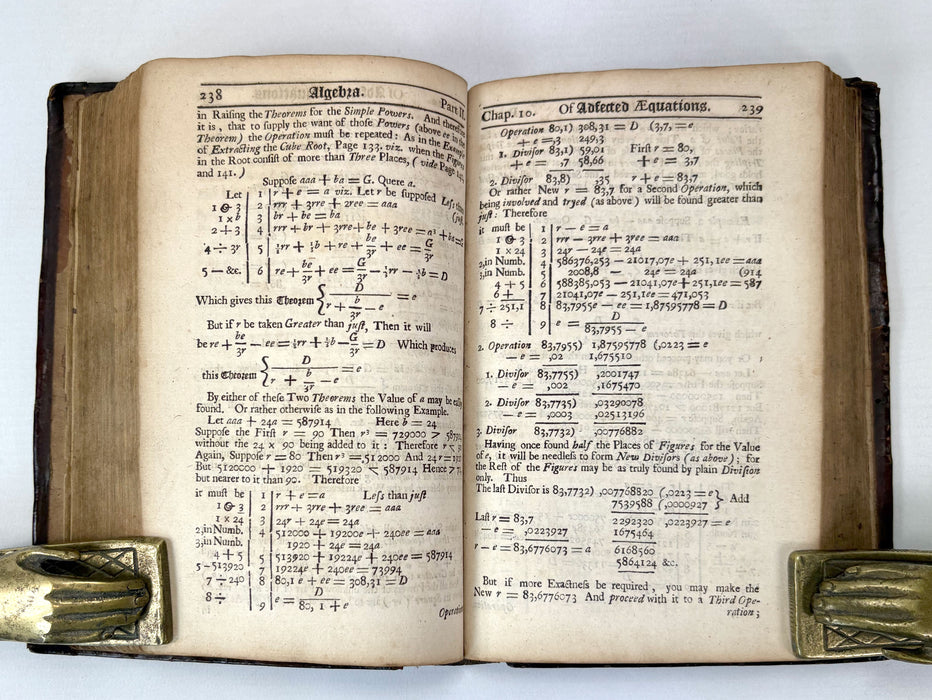 238 Algebra. Part II.
in Raising the Theorems for the Simple Powers. And therefore
it is, that to supply the want of those Powers (above ee in the
Theorem) the Operation must be repeated: As in the Example
of Extracting the Cube Root, Page 133, viz. when the Figures
in the Root consist of more than Three Places, (vide Page
and 141.)
Suppose aaa + ba = G. Quere a.
Let | 1 | r + e = a viz. Let r be supposed Less than
1 ⊕ 3 | 2 | rrr + 3rre + 3ree = aaa (just
1 × b | 3 | br + be = ba
2 + 3 | 4 | rrr + br + 3rre + be + 3ree = a³ + ba = G
4 ÷ 3r | 5 | ⅓rr + ⅓b + re + be/3r + ee = G/3r
5 — &c. | 6 | re + be/3r + ee = G/3r — ⅓rr — ⅓b = D
Which gives this Theorem { D / r + b/3r — e = e
But if r be taken Greater than just, Then it will
be re + be/3r — ee = ⅓rr + ⅓b — G/3r = D Which produces
this Theorem { D / r + b/3r — e = e
By either of these Two Theorems the Value of a may be easily
found. Or rather otherwise as in the following Example.
Let aaa + 24a = 587914 Here b = 24
Suppose the First r = 90 Then r³ = 729000 > 587914
without the 24 × 90 being added to it: Therefore r <
Again, Suppose r = 80 Then r³ = 512000 And 24r = 1920
But 512000 + 1920 = 519320 < 587914 Hence
but nearer to it than 90. Therefore
it must be | 1 | r + e = a Less than just
1 ⊕ 3 | 2 | rrr + 3rre + 3ree = aaa
1 × 24 | 3 | 24r + 24e = 24a
2, in Numb. | 4 | 512000 + 19200e + 240ee = aaa
3, in Numb. | 1920 + 24e = 24a
4 + 5 | 5 | 513920 + 19224e + 240ee = 587914
5 — 513920 | 7 | 19224e + 240ee = 73994
7 ÷ 240 | 8 | 80,1 e + ee = 308,31 = D
8 ÷ | 9 | e = D / 80,1 + e
Operation
Chap. 10. Of Adfected Æquations. 239
1. Operation 80,1) 308,31 = D (3,7, = e
+ e = ,3 249,3
1. Divisor 83,1) 59,01 First r = 80,
+ e = ,7 58,66 + e = 3,7
2. Divisor 83,8) ,35 r + e = 83,7
Or rather New r = 83,7 for a Second Operation, which
being involved and tryed (as above) will be found greater than
just: Therefore
it must be | 1 | r — e = a
1 ⊕ 3 | 2 | rrr — 3rre + 3ree = aaa
1 × 24 | 3 | 24r — 24e = 24a
2, in Numb. | 4 | 586376,253 — 21017,07e + 251,1ee = aaa
3, in Numb. | 5 | 2008,8 — 24e = 24a (914
4 + 5 | 6 | 588385,053 — 21041,07e + 251,1ee = 587
6 + | 7 | 21041,07e — 251,1ee = 471,053
7 ÷ 251,1 | 8 | 83,7955e — ee = 1,87595778 = D
8 ÷ | 9 | e = D / 83,7955 — e
2. Operation 83,7955) 1,87595778 (,0223 = e
— e = ,02 1,675510
1. Divisor 83,7755) ,2001747
— e = ,002 ,1675470
2. Divisor 83,7735) ,03290078
— e = ,0003 ,02513196
3. Divisor 83,7732) ,00776882
Having once found half the Places of Figures for the Value
of e, it will be needless to form New Divisors (as above); for
the Rest of the Figures may be as truly found by plain Division
only. Thus
The last Divisor is 83,7732) ,007768820 (,0223 = e } Add
7539588 (,0000927
Last r = 83,7 2292320 ,0223927 = e
— e = ,0223927 1675464
r — e = 83,6776073 = a 6168560
5864124 &c.
But if more Exactness be required, you may make the
New r = 83,6776073 And proceed with it to a Third Ope-
ration;